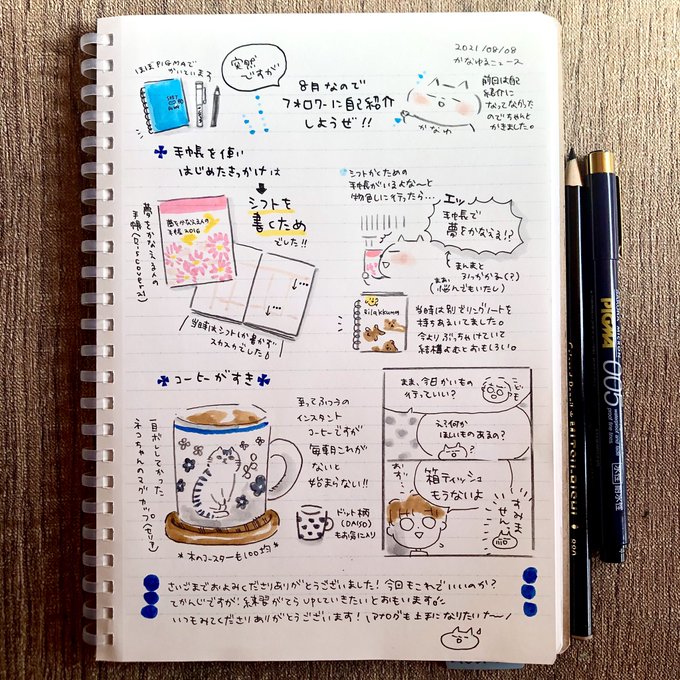 2021/08/08
かなゆるニュース
ほぼPIGMAで
かいているよ
突然
ですが
8月なので
フォロワーに自己紹介
しようぜ!!
かなゆ
前回は自己
紹介に
なってなかった
のでちゃんと
かきました。
手帳を使い
はじめたきっかけは
シフトを
書くため
でした!!
夢をかなえる人の
手帳(Discover21)
夢をかなえる人の
手帳2016
当時はシフトしか書かず
スカスカでした♪
シフトかくための
手帳がいるよな〜と
物色しに行ったら…
エッ
手帳で
夢をかなえる!?
まんまと
ひっかかる(?)
(悩んでもいたし)
Rilakkuma
当時は別でリングノートを
持ちあるいてました。
今よりぶっちゃけていて
結構よむとおもしろい。
コーヒーがすき
一目ぼれしてかった
ネコちゃんのマグカップ(セリア)
至ってふつうの
インスタント
コーヒーですが
毎朝これが
ないと
始まらない!!
ドット柄
(DAISO)
もお気に入り
*木のコースターも100均*
まま、今日かいもの
行っていい?
こども
え?何か
ほしいものあるの?
箱ティッシュ
もうないよ
すみま
せん
さいごまでおよみくださりありがとうございました!今回もこれでいいのか?
てかんじですが!練習がてらupしていきたいとおもいます
いつもみてくださりありがとうございます!アナログも上手になりたいナ〜
PIGMA
005